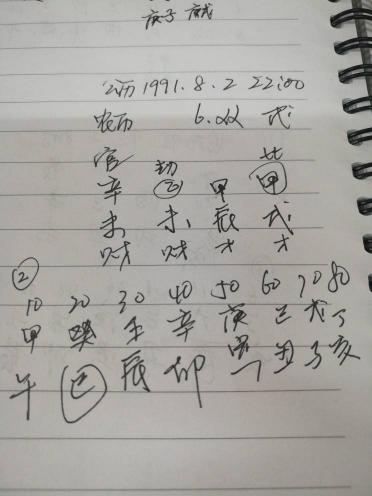 庚子
公历 1991.8.2 22:00
农历 6.22 戌
官 劫 比
辛 乙 甲 甲
未 未 辰 戌
财 财 才 才
②
10 20 30 40 50 60 70 80
甲 癸 壬 辛 庚 己 戊 丁
午 巳 辰 卯 寅 丑 子 亥